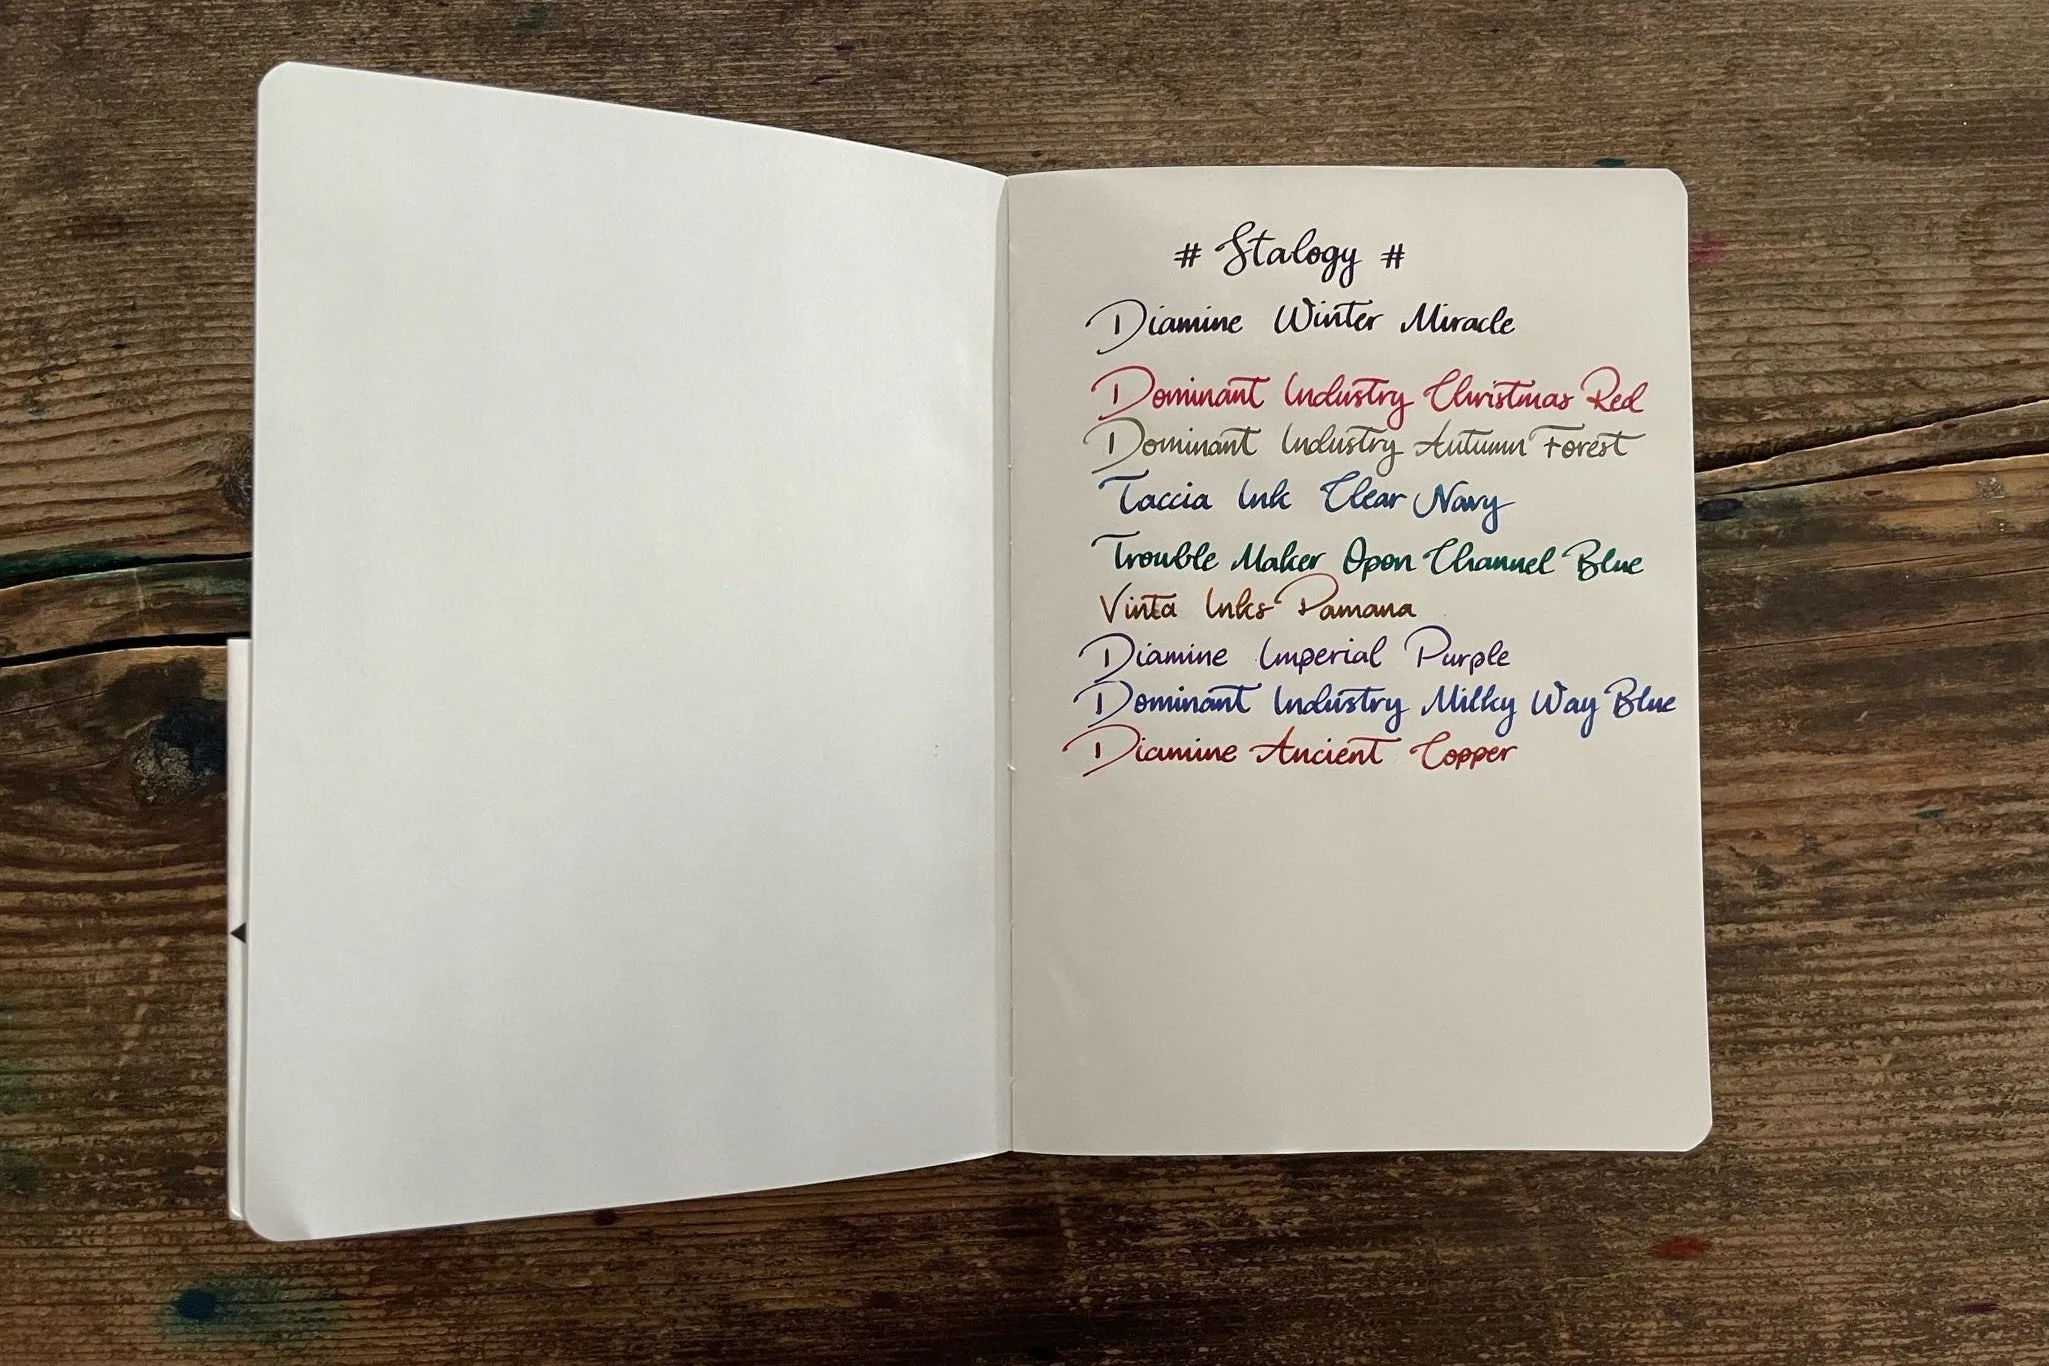 # Stalogy #
Diamine Winter Miracle
Dominant Industry Christmas Red
Dominant Industry Autumn Forest
Taccia Ink Clear Navy
Trouble Maker Opon Channel Blue
Vinta Inks Pamana
Diamine Imperial Purple
Dominant Industry Milky Way Blue
Diamine Ancient Copper